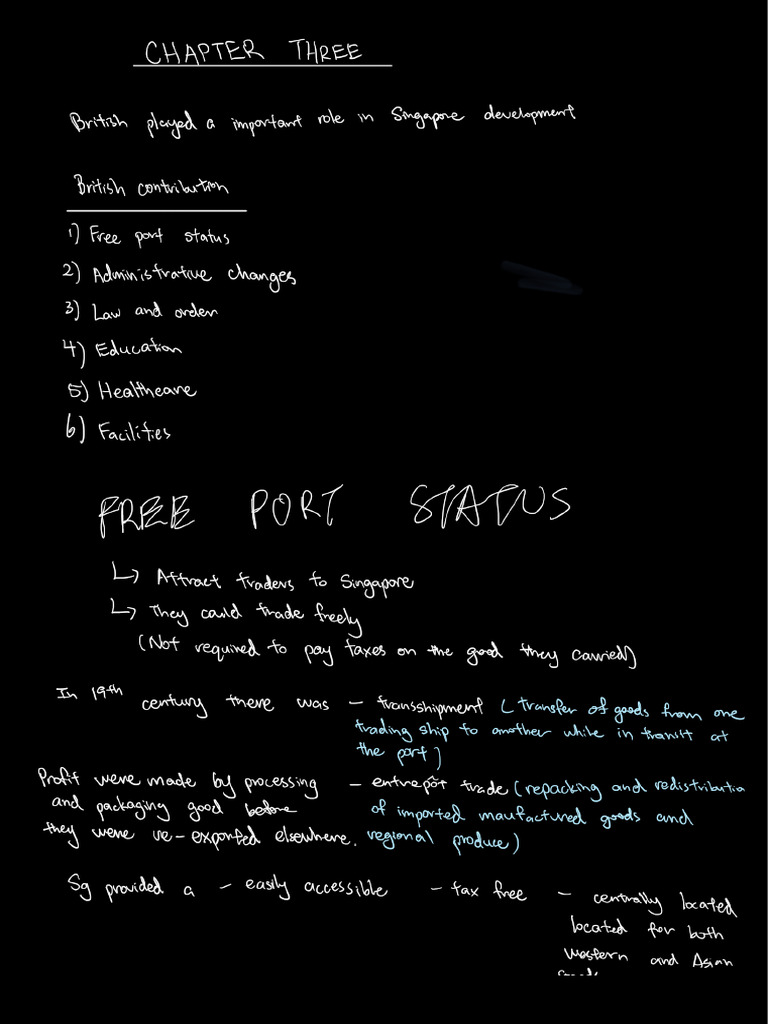 CHAPTER THREE
British played a important role in Singapore development
British contribution
1) Free port status
2) Administrative changes
3) Law and order
4) Education
5) Healthcare
6) Facilities
FREE PORT STATUS
↳ Attract traders to Singapore
↳ They could trade freely
(Not required to pay taxes on the good they carried)
In 19th century there was - transshipment (transfer of goods from one
trading ship to another while in transit at
the port)
Profit were made by processing
and packaging good before
they were re-exported elsewhere.
- entrepôt trade (repacking and redistributio
of imported maufactured goods and
regional produce)
Sg provided a - easily accessible - tax free - centrally located
located for both
western and Asian